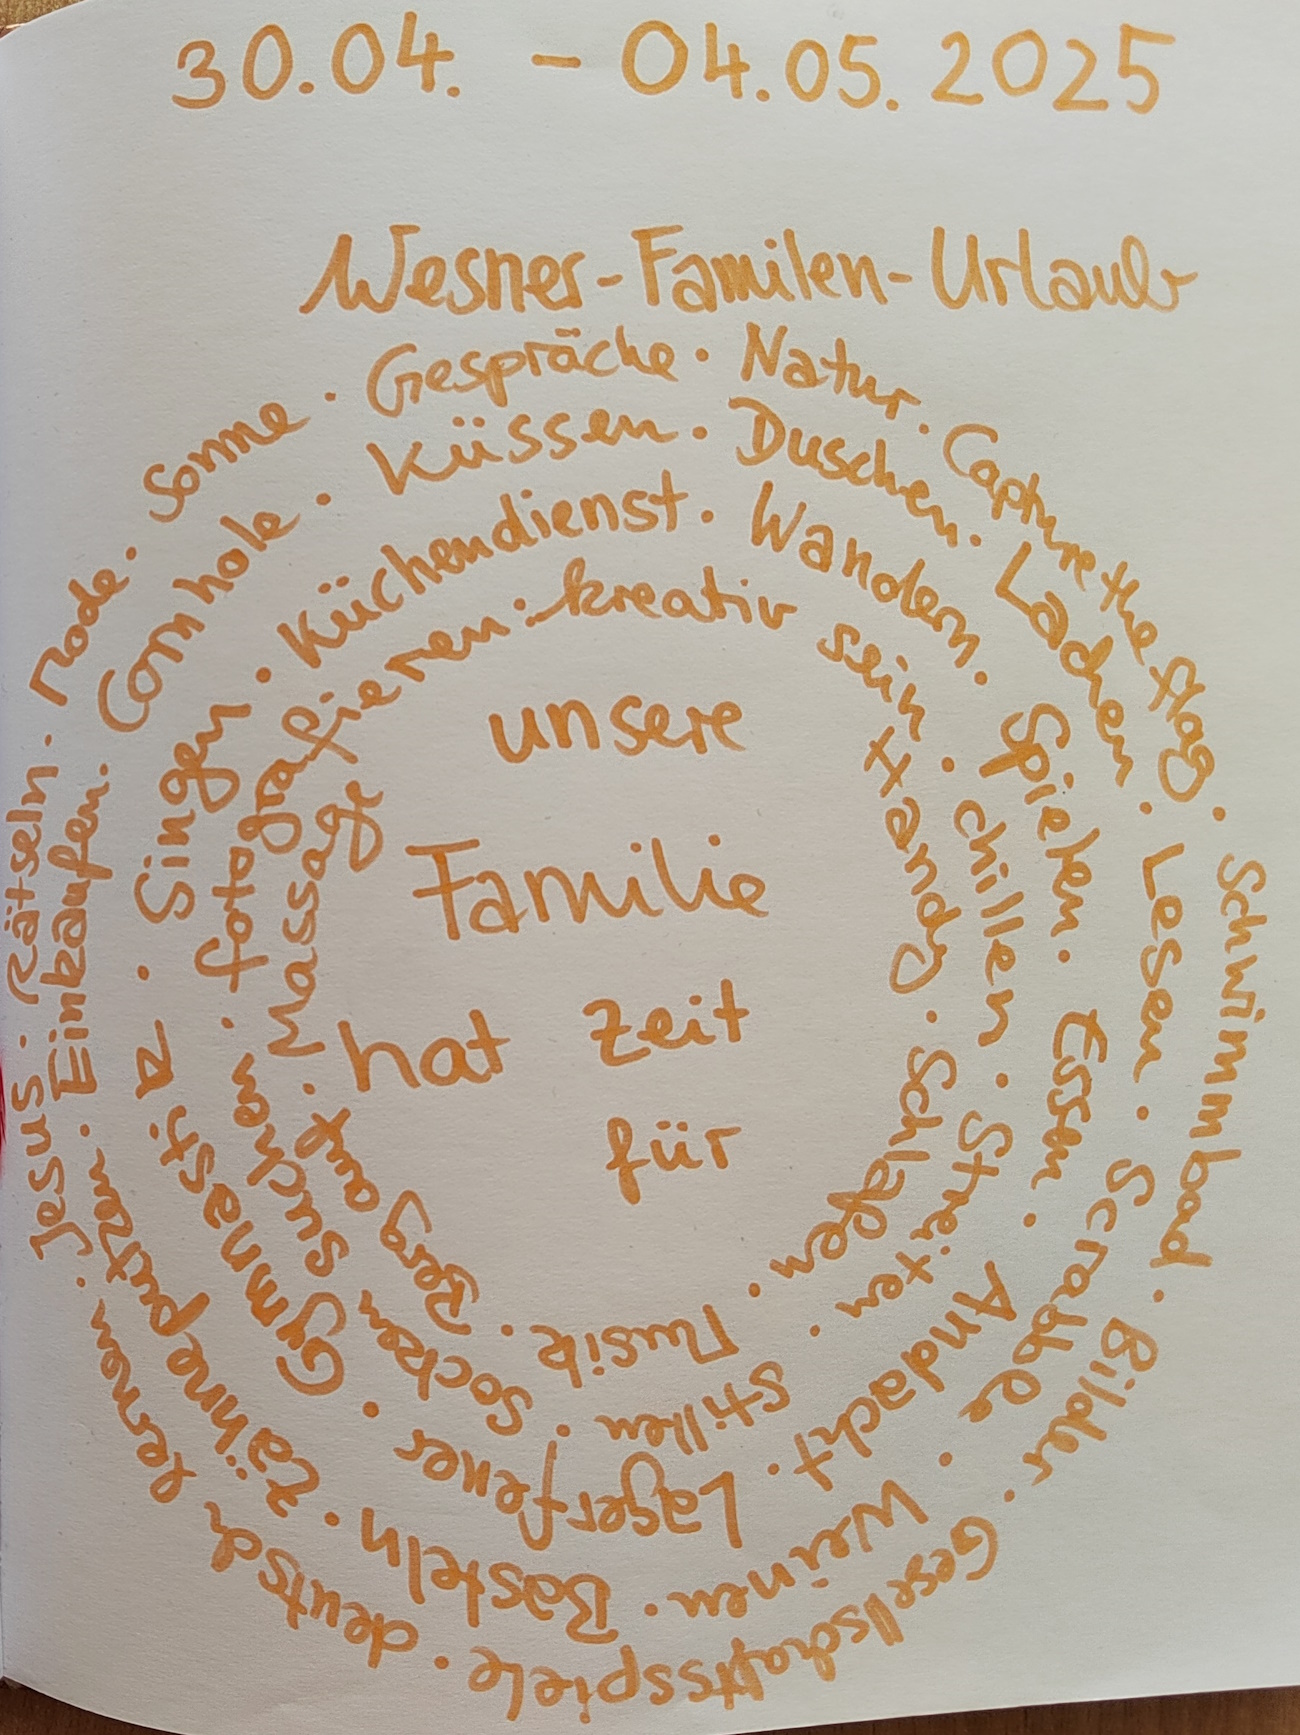 30.04. - 04.05.2025
Wesner-Familen-Urlaub
unsere
Familie
hat Zeit
für
kreativ sein · Handy · Schlafen · Musik · Berg auf · Massage
Küchendienst · Wandern · chillen · Streiten · stillen · Socken suchen · fotografieren ·
Küssen · Duschen · Lachen · Spielen · Essen · Andacht · Lagerfeuer · Gymnastik · Singen ·
Gespräche · Natur · Capture the flag · Lesen · Scrabble · Weinen · Basteln · Zähne putzen · Einkaufen · Cornhole ·
Schwimmbad · Bilder · Gesellschaftsspiele · deutsch lernen · Jesus · Rätseln · Mode · Sonne ·